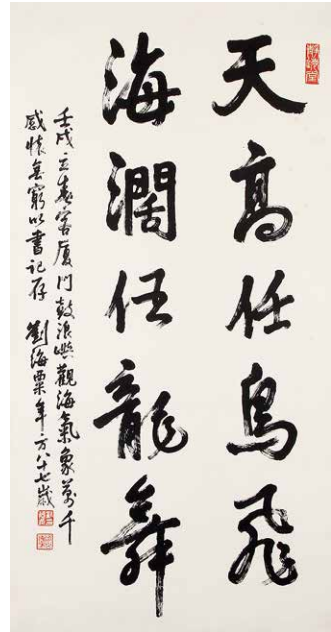 天高任鳥飛
海濶任龍舞
壬戌立春客厦門鼓浪嶼觀海氣象萬千
感懷無窮以書記存　劉海粟年方八十七歲